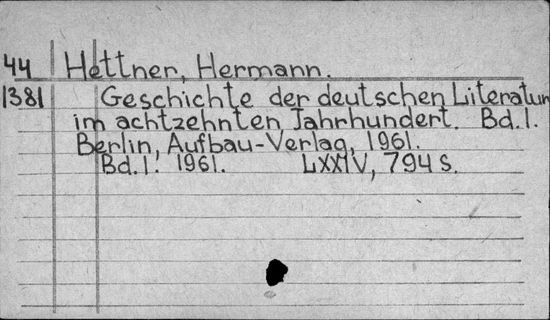 44 Hettner, Hermann.
1381 Geschichte der deutschen Literatur
im achtzehnten Jahrhundert. Bd. 1.
Berlin, Aufbau-Verlag, 1961.
Bd. 1. 1961. LXXIV, 794 S.